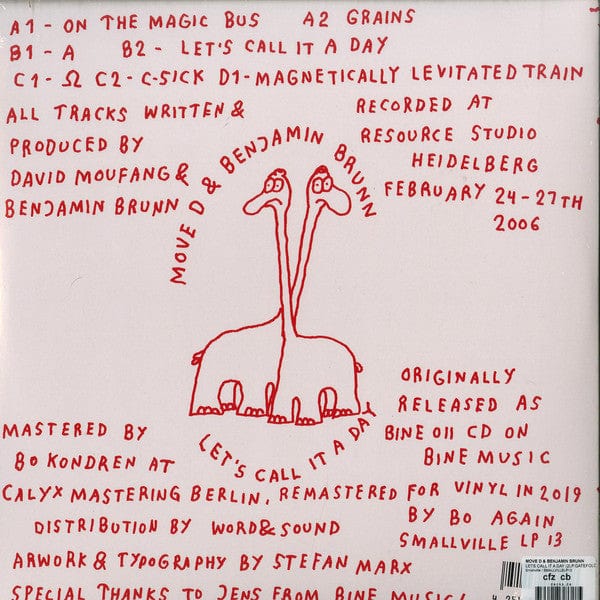 A1 - ON THE MAGIC BUS A2 GRAINS
B1 - A B2 - LET'S CALL IT A DAY
C1 - Ω C2 - C-SICK D1 - MAGNETICALLY LEVITATED TRAIN
ALL TRACKS WRITTEN &
PRODUCED BY
DAVID MOUFANG &
BENJAMIN BRUNN
RECORDED AT
RESOURCE STUDIO
HEIDELBERG
FEBRUARY 24-27TH
2006
MOVE D & BENJAMIN BRUNN
LET'S CALL IT A DAY
ORIGINALLY
RELEASED AS
BINE 011 CD ON
BINE MUSIC
MASTERED BY
BO KONDREN AT
CALYX MASTERING BERLIN, REMASTERED FOR VINYL IN 2019
BY BO AGAIN
DISTRIBUTION BY WORD & SOUND
SMALLVILLE LP 13
ARWORK & TYPOGRAPHY BY STEFAN MARX
SPECIAL THANKS TO JENS FROM BINE MUSIC!
MOVE D & BENJAMIN BRUNN
LET'S CALL IT A DAY (2LP,GATEFOLD
cfz cb